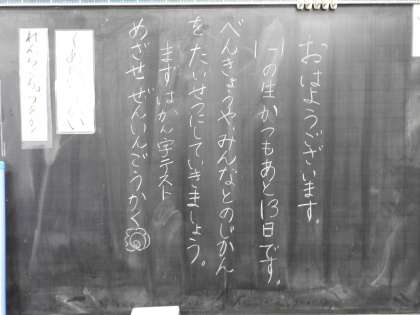 おはようございます。
1-1の生かつもあと13日です。
べんきょうやみんなとのじかん
をたいせつにしていきましょう。
まずはかん字テスト
めざせぜんいんごうかく